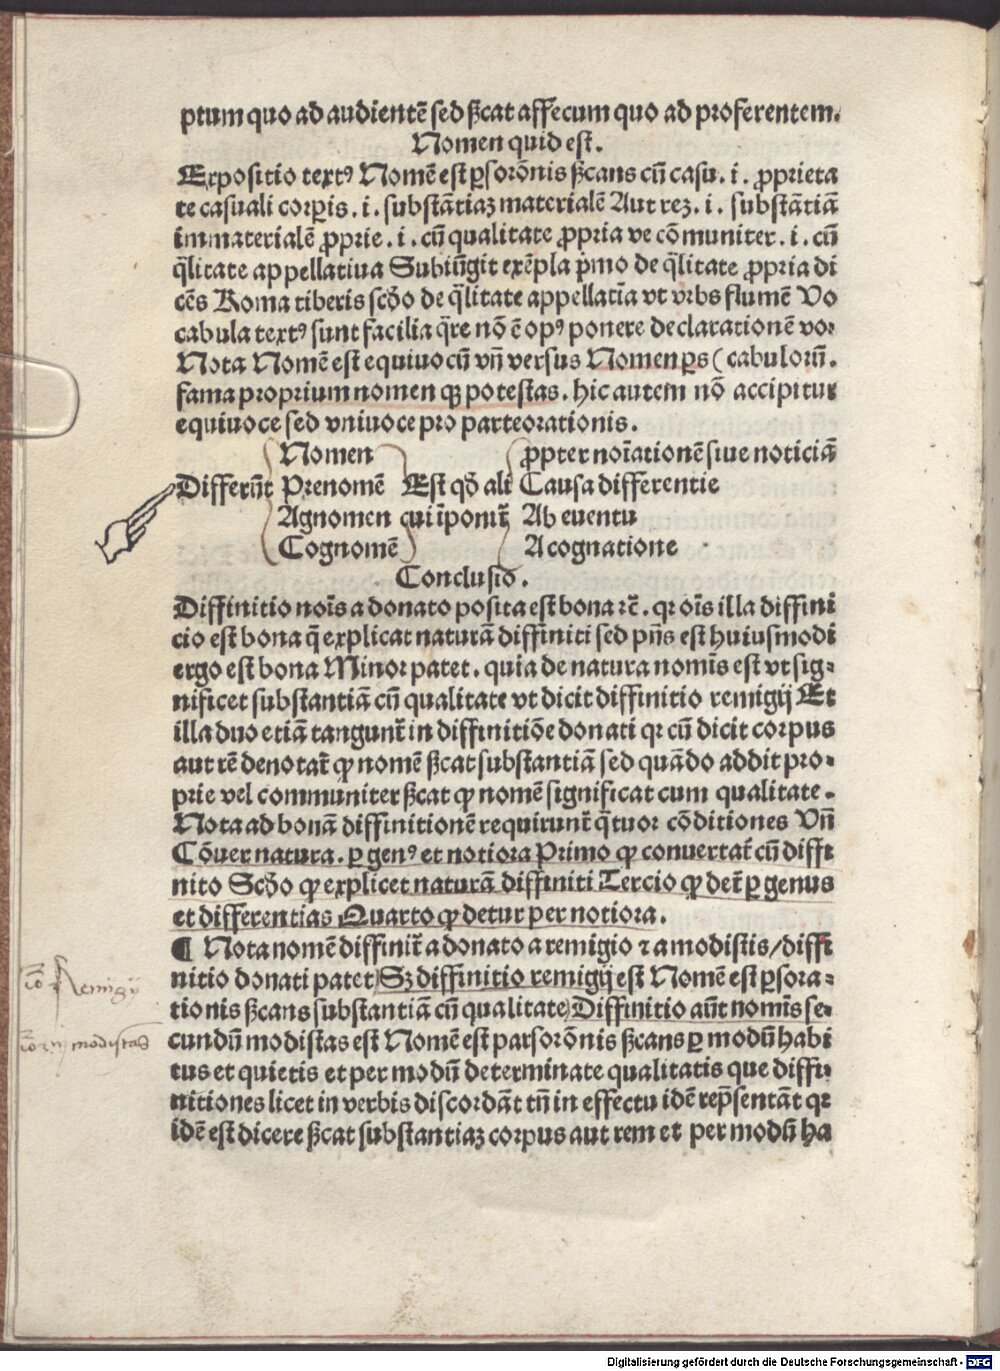 ptum quo ad audientē sed ſſcat affecum quo ad proferentem.
Nomen quid est.
Expositio textꝰ Nomē est ꝑsorōnis ſſcans cū casu. i. ꝓprieta
te casuali corꝑis. i. substātiaꝫ materialē Aut reꝫ. i. substātiā
immaterialē ꝓprie. i. cū qualitate ꝓpria ve cōmuniter. i. cū
q̄litate appellatiua Subiūgit exēpla p̄mo de q̄litate ꝓpria di
cēs Roma tiberis scd̄o de q̄litate appellatīa vt vrbs flumē Vo
cabula textꝰ sunt facilia q̄re nō ē opꝰ ponere declarationē vo⸗
Nota Nomē est equiuocū vn̄ versus Nomen ꝑs (cabulorū.
fama proprium nomen qꝫ potestas. hic autem nō accipitur
equiuoce sed vniuoce pro parte orationis.
Nomen ꝓpter noīationē siue noticiā
Differūt Prenomē Est qd̄ ali Causa differentie
Agnomen cui īponit̄ Ab euentu
Cognomē A cognatione
Conclusio.
Diffinitio noīs a donato posita est bona rc̄. qꝛ oīs illa diffini
cio est bona q̄ explicat naturā diffiniti sed pn̄s est huiusmodi
ergo est bona Minor patet. quia de natura nomīs est vt sig⸗
nificet substantiā cū qualitate vt dicit diffinitio remigij Et
illa duo etiā tangunt̄ in diffinitiōe donati qꝛ cū dicit corpus
aut rē denotat̄ ꝙ nomē ſſcat substantiā sed quādo addit pro⸗
prie vel communiter ſſcat ꝙ nomē significat cum qualitate.
Nota ad bonā diffinitionē requirunt̄ q̄tuor cōditiones Vn̄
Cōuer natura. ꝑ genꝰ et notiora Primo ꝙ conuertat̄ cū diffi
nito Scd̄o ꝙ explicet naturā diffiniti Tercio ꝙ det̄ ꝑ genus
et differentias Quarto ꝙ detur per notiora.
¶ Nota nomē diffinit̄ a donato a remigio ⁊ a modistis/diffi
nitio donati patet Sꝫ diffinitio remigij est Nomē est ꝑs ora⸗
tionis ſſcans substantiā cū qualitate Diffinitio aūt nomīs se⸗
cundū modistas est Nomē est pars orōnis ſſcans ꝑ modū habi
tus et quietis et per modū determinate qualitatis que diffi⸗
nitiones licet in verbis discordāt tn̄ in effectu idē rep̄sentāt qꝛ
idē est dicere ſſcat substantiaꝫ corpus aut rem et per modū ha
Remigij
modistas
Digitalisierung gefördert durch die Deutsche Forschungsgemeinschaft - DFG